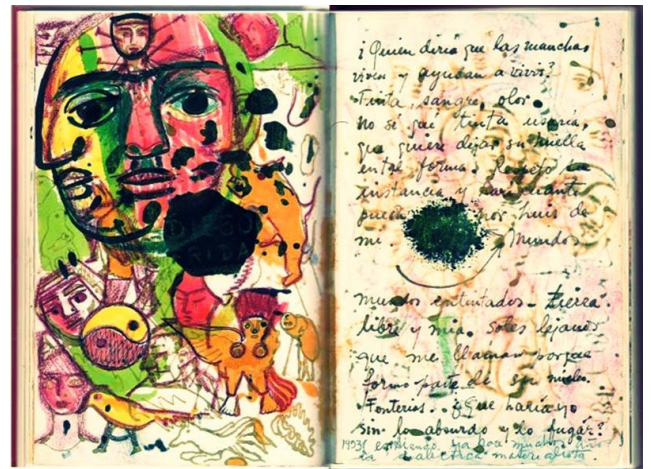 ¿Quien diria que las manchas
viven y ayudan a vivir?
Tinta, sangre, olor.
No sé qué tinta usaria,
que quiere dejar su huella
en tal forma. Respeto su
instancia y haré cuanto
pueda por huir de
mi Mundos
mundos entintados - tierra
libre y mia. Soles lejanos
que me llaman porque
formo parte de su núcleo.
Tonterias. ¿Que haria yo
sin lo absurdo y lo fugaz?
1953 entiendo ya hace muchos años
la dialéctica materialista.